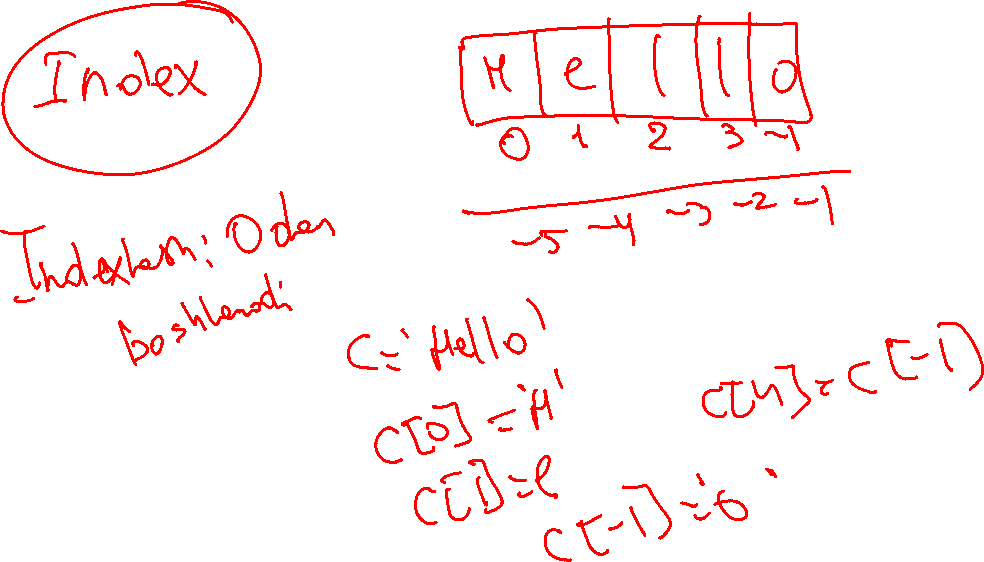 Index
H e l l o
0 1 2 3 -1
-5 -4 -3 -2 -1
Indexlash: 0 dan
boshlanadi
C='Hello'
C[0]='H'
C[1]=e
C[-1]='o'
C[4]=C[-1]